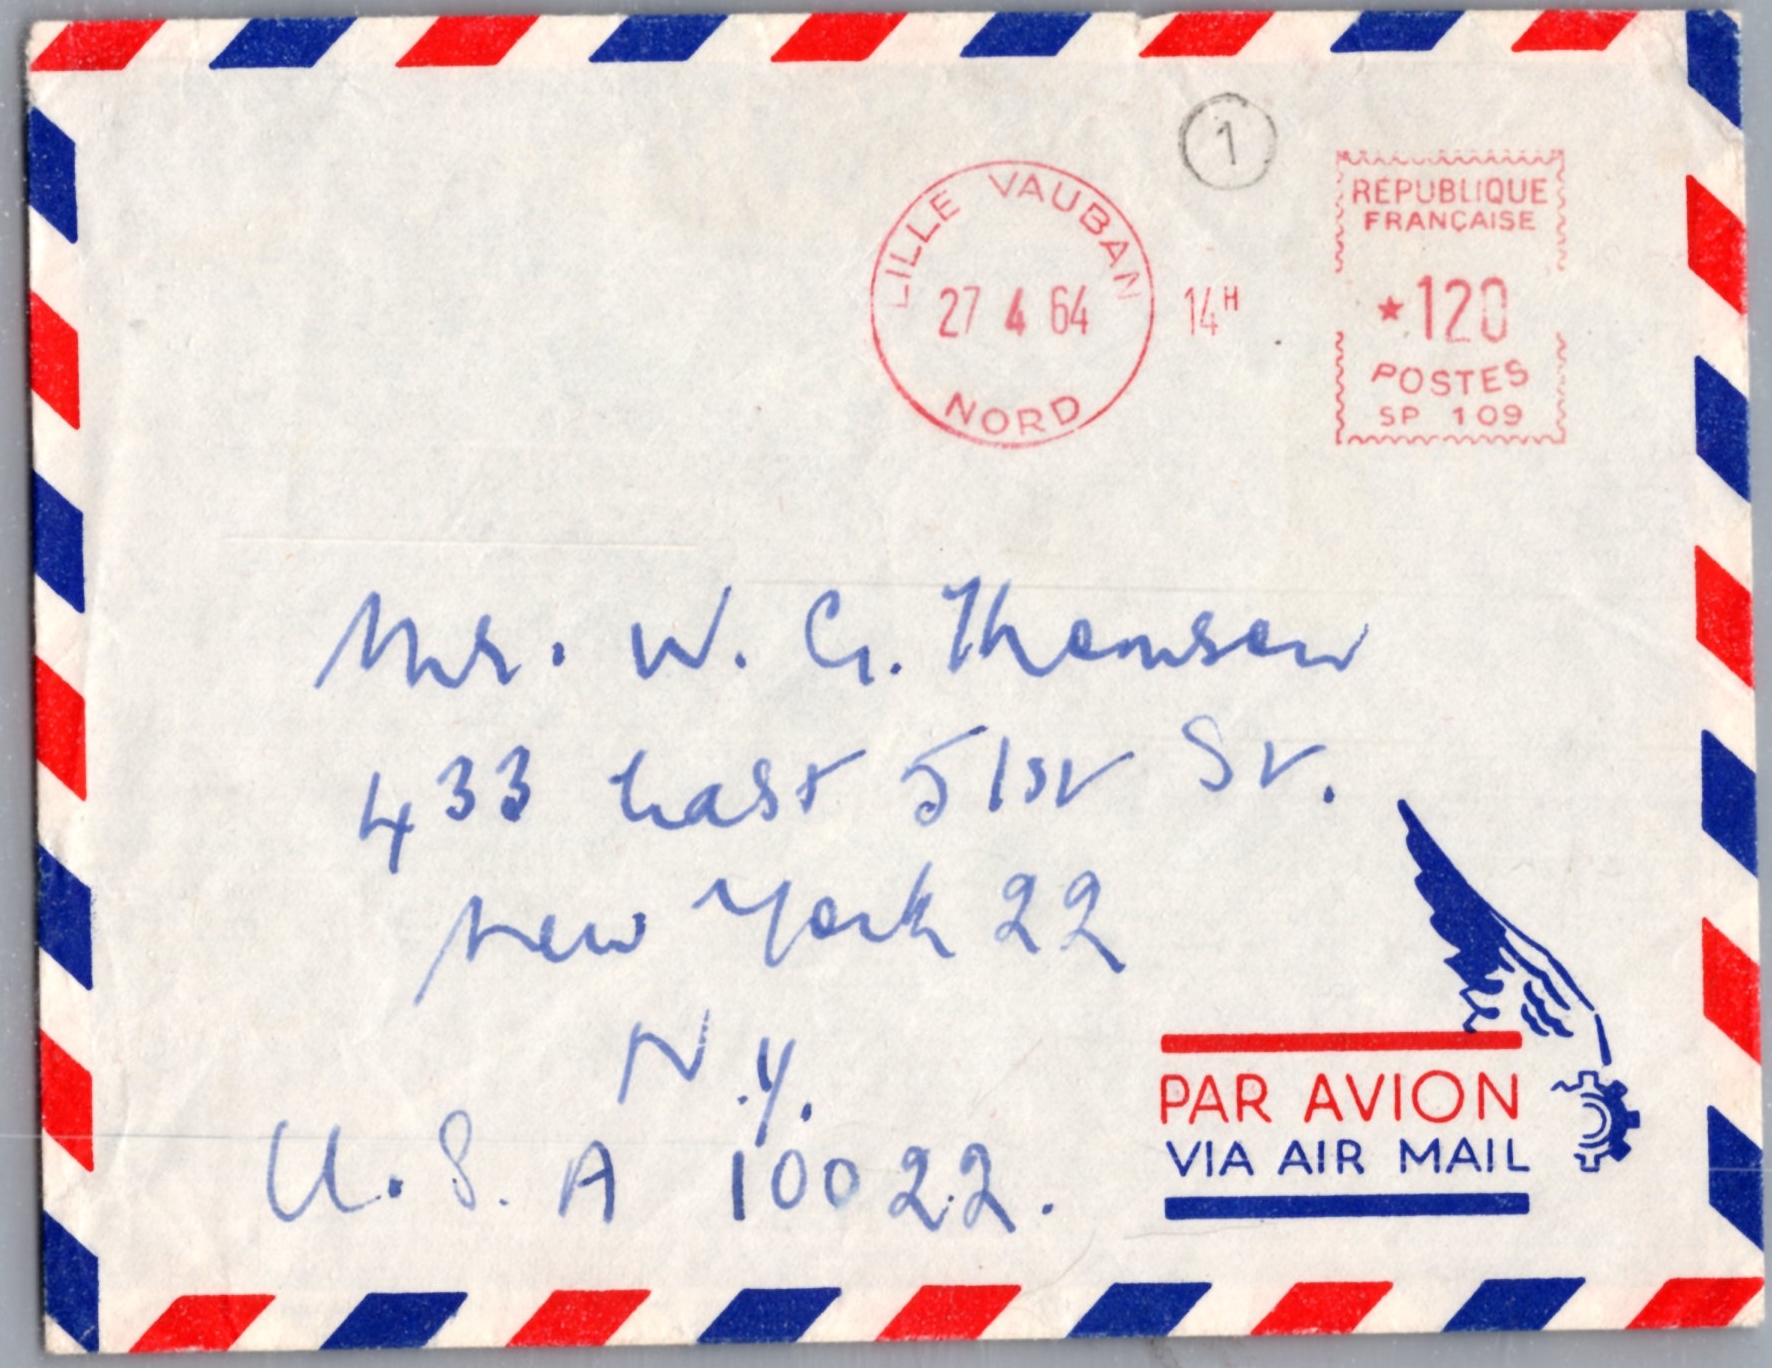 1
LILLE VAUBAN
27 4 64
NORD
14H
RÉPUBLIQUE
FRANÇAISE
★120
POSTES
SP 109
Mr. W. G. Thomson
433 East 51st St.
New York 22
N.Y.
U.S.A 10022.
PAR AVION
VIA AIR MAIL